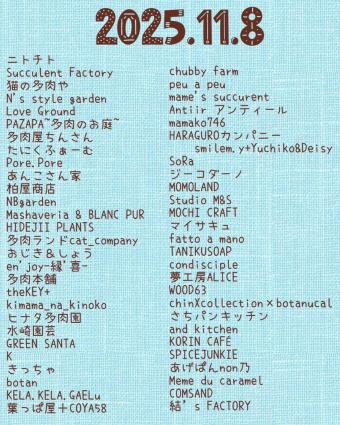 2025.11.8
ニトチト
Succulent Factory
猫の多肉や
N's style garden
Love Ground
PAZAPA~多肉のお庭~
多肉屋ちんさん
たにくふぁーむ
Pore.Pore
あんこさん家
柏屋商店
NBgarden
Mashaveria & BLANC PUR
HIDEJII PLANTS
多肉ランドcat_company
おじき&しょう
en'joy-縁'喜-
多肉本舗
theKEY+
kimama_na_kinoko
ヒナタ多肉園
水崎園芸
GREEN SANTA
K
きっちゃ
botan
KELA.KELA.GAELu
葉っぱ屋+COYA58
chubby farm
peu a peu
mame's succurent
Antiir アンティール
mamako746
HARAGUROカンパニー
smilem.y+Yuchiko&Deisy
SoRa
ジーコダーノ
MOMOLAND
Studio M&S
MOCHI CRAFT
マイサキュ
fatto a mano
TANIKUSOAP
condisciple
夢工房ALICE
WOOD63
chinXcollection×botanucal
さちパンキッチン
and kitchen
KORIN CAFÉ
SPICEJUNKIE
あげぱんnon乃
Meme du caramel
COMSAND
結's FACTORY